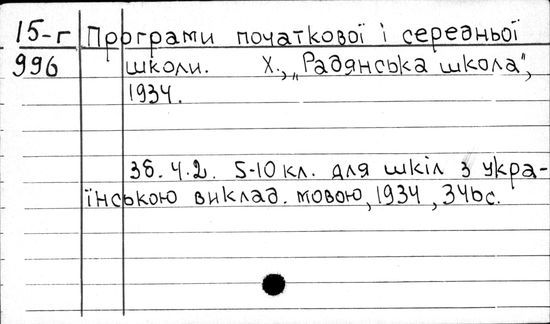 15-г Програми початкової і середньої
996 школи. Х., „Радянська школа",
1934.
Зб. Ч.2. 5-10 кл. для шкіл з укра-
їнською виклад. мовою, 1934, 346с.